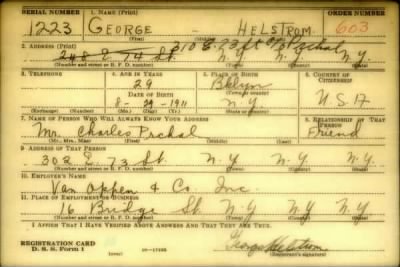 SERIAL NUMBER 1. NAME (Print) ORDER NUMBER
1223 GEORGE - HELSTROM 603
(First) (Middle) (Last)
2. ADDRESS (Print) 310 E. 73 St
248 E 74 St. N.Y. N.Y.
(Number and street or R. F. D. number) (Town) (County) (State)
3. TELEPHONE 4. AGE IN YEARS 5. PLACE OF BIRTH 6. COUNTRY OF CITIZENSHIP
29 Bklyn
DATE OF BIRTH (Town or county)
8- 29 -1911 N.Y. U.S.A
(Exchange) (Number) (Mo.) (Day) (Yr.) (State or country)
7. NAME OF PERSON WHO WILL ALWAYS KNOW YOUR ADDRESS 8. RELATIONSHIP OF THAT PERSON
Mr. Charles Pachal Friend
(Mr., Mrs., Miss) (First) (Middle) (Last)
9. ADDRESS OF THAT PERSON
302 E. 73 St. N.Y. N.Y. N.Y.
(Number and street or R. F. D. number) (Town) (County) (State)
10. EMPLOYER'S NAME
Van Oppen & Co. Inc.
11. PLACE OF EMPLOYMENT OR BUSINESS
16 Bridge St. N.Y. N.Y. N.Y.
(Number and street or R. F. D. number) (Town) (County) (State)
I AFFIRM THAT I HAVE VERIFIED ABOVE ANSWERS AND THAT THEY ARE TRUE.
REGISTRATION CARD
D. S. S. Form 1 George Helstrom
(Registrant's signature)